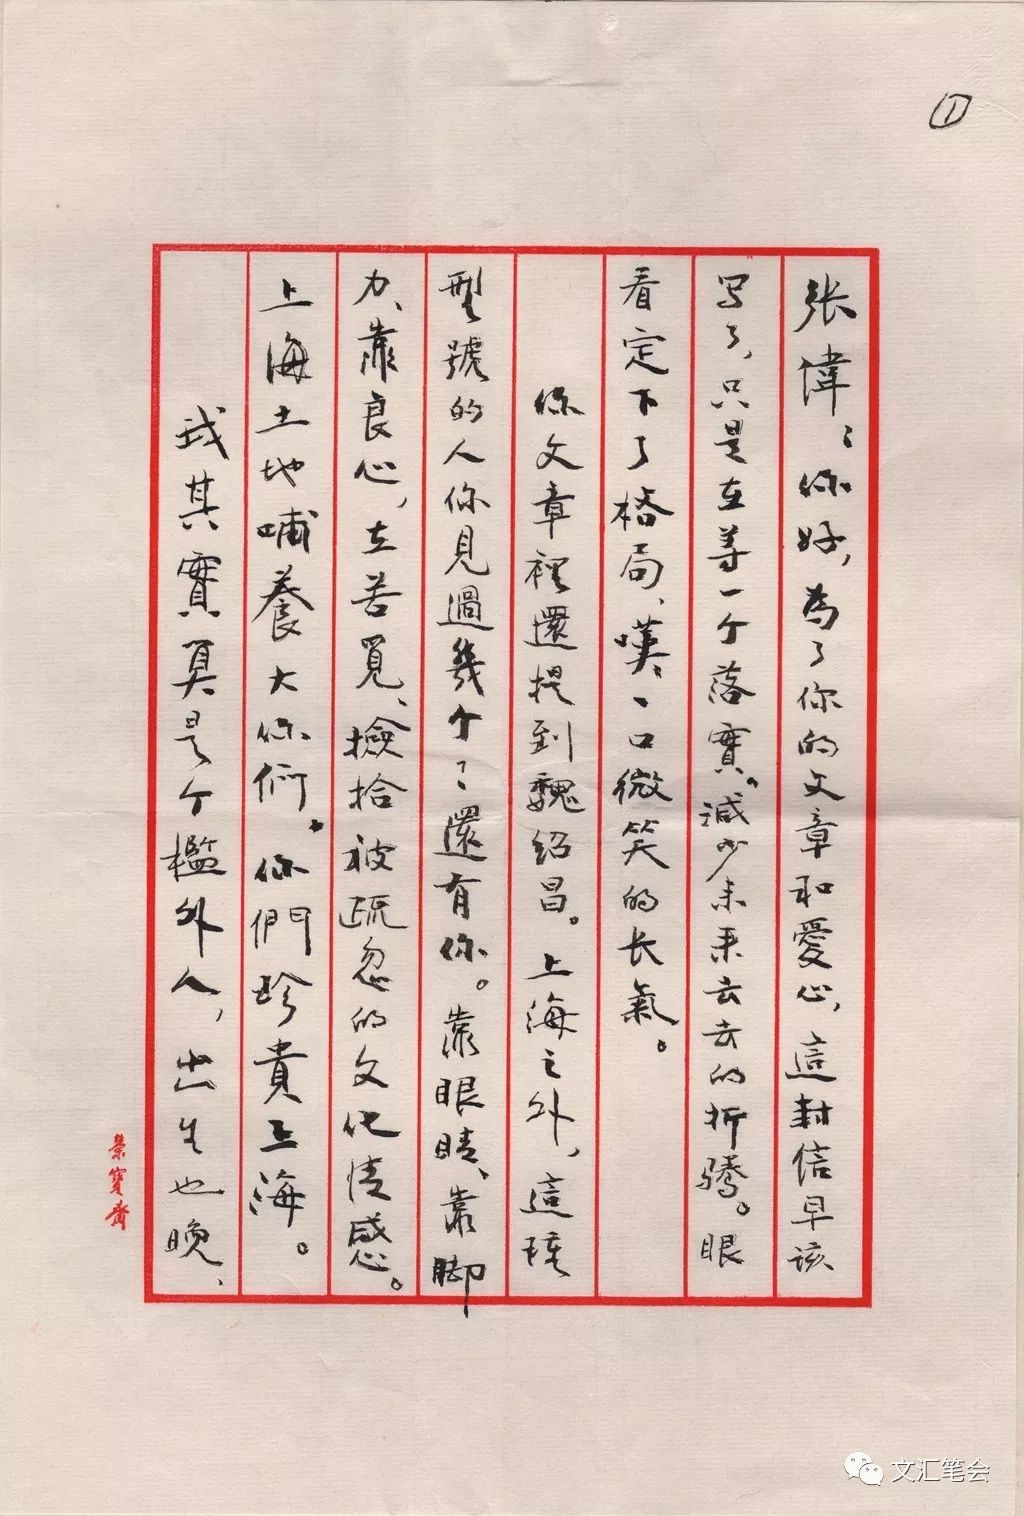 ①
张偉：你好，为了你的文章和愛心，這封信早该
写了，只是在等一个落實。减少来来去去的折騰。眼
看定下了格局，嘆一口微笑的长氣。
你文章裡還提到魏绍昌。上海之外，這種
型號的人你見過幾个？還有你。靠眼睛、靠脚
力、靠良心，去苦覓、撿拾被疏忽的文化情感。
上海土地哺養大你们。你們珍貴上海。
我其實真是个檻外人，出生也晚、
榮寶齋
文汇笔会